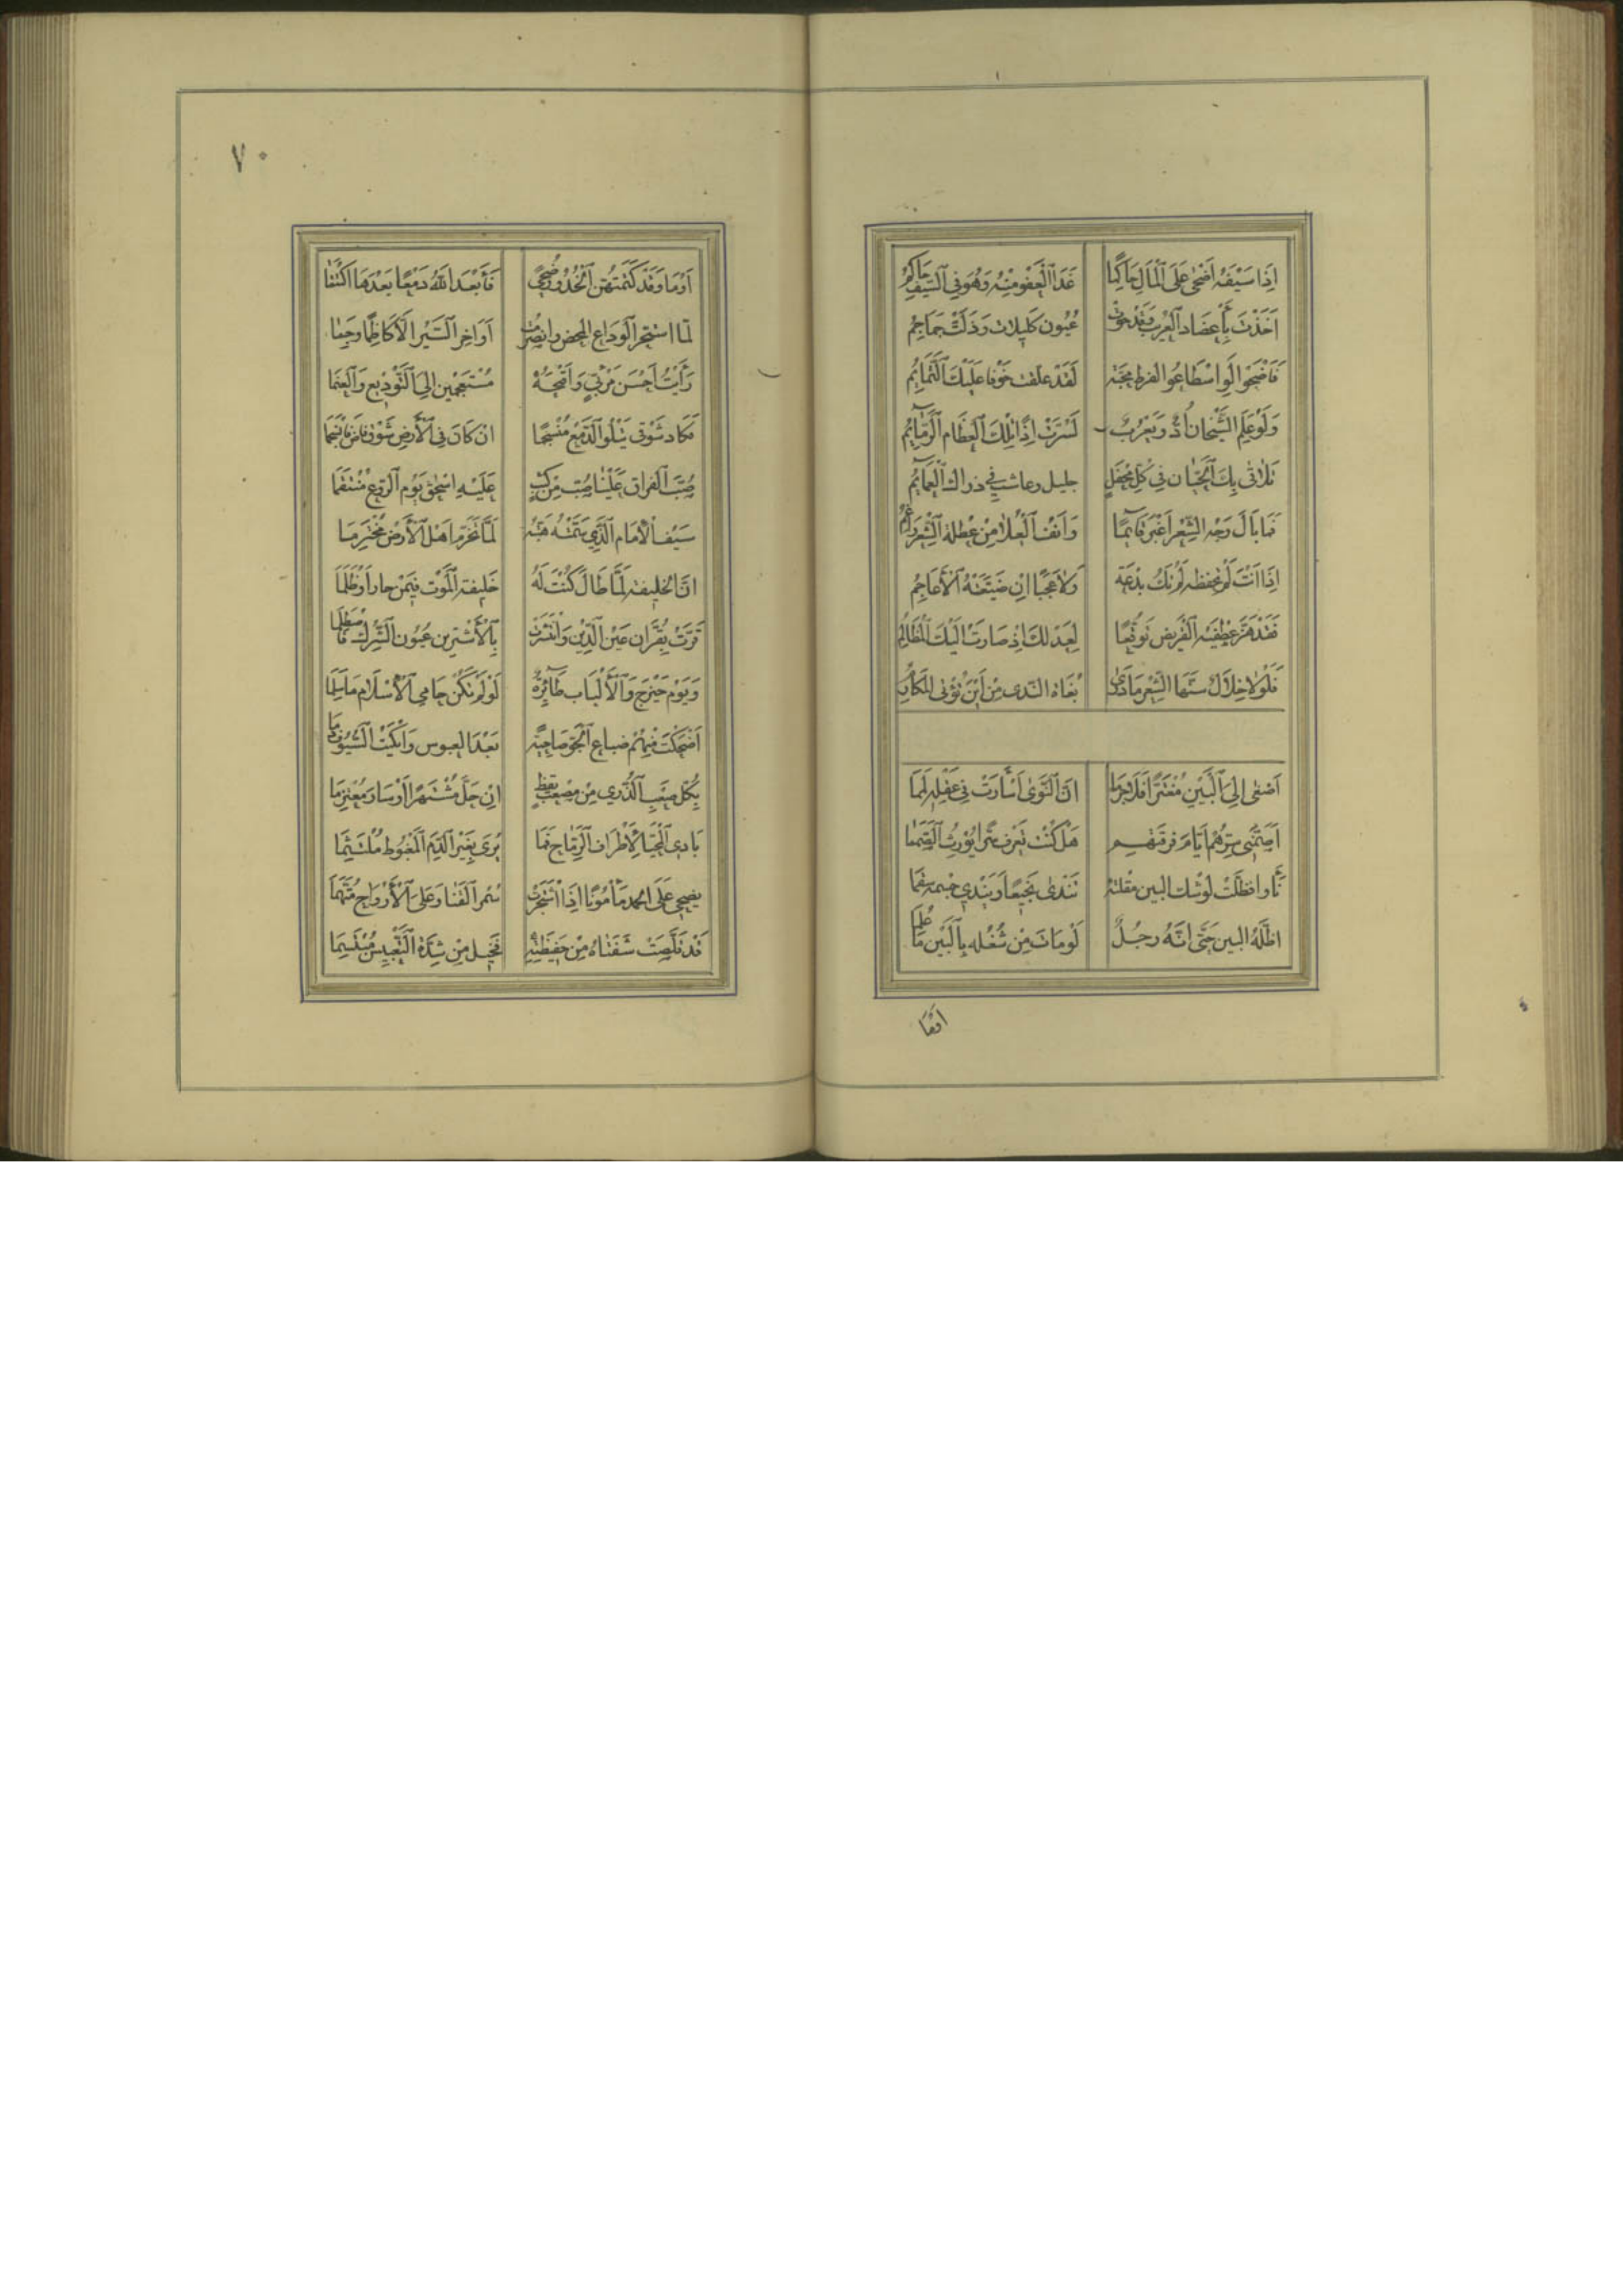 اِذَا سَيْفُهُ اَضْحَى عَلَى اَلْمَالِ حَاكِمًا غَدَا اَلْعَفْوُ مِنْهُ وَهُوَ فِي اَلسَّيْفِ حَاكِمُ
اَخَذْتَ بِأَعْضَادِ اَلْعُرَيْبِ وَقَدْ خَوَتْ عُيُون كَلِيلات وَذَلَّتْ جَمَاجِمُ
فَاَضْحَوا لَوِ اسْطَاعُوا لفرط مَحَبَّة لَقَدْ علقت خَوْفا عَلَيْكَ اَلتَّمَائِمُ
وَلَوْ عَلِمَ الشَّيْخَان اُدٌّ وَيَعْرُبٌ لَسُرَّتْ اِذًا تِلْكَ اَلْعِظَام اَلرَّمَائِمُ
تَلَاقَى بِكَ اَلْحَيَّان فِي كُلِّ مَحْفَلٍ جليل وعاشت في ذراك اَلْعَمَائِمُ
فَمَا بَالُ وَجْه الشِّعْر اَغْبَر قَاتِمًا وَاَنْف اَلْعُلَا مِنْ عُطْلة اَلشِّعْر رَاغِمُ
اِذَا اَنْتَ لَمْ تحفظه لَمْ يَكُ بِدْعَة وَلَا عَجَبًا اِنْ ضَيَّعَتْهُ اَلْأَعَاجِمُ
فَقَدْ هَزَّ عِطْفَيْه اَلْقَرِيض تَوَقُّعًا لِعَدْلِكَ اِذْ صَارَتْ اِلَيْكَ اَلْمَظَالِمُ
فَلَوْلَا خِلَال سَنَّهَا الشِّعْر مَا دَرَى بُغَاة النَّدى مِنْ اَيْنَ تُؤْتى المَكَارِمُ
اَصْغى اِلَى اَلْبَيْنِ مُغْتَرًّا فَلَا جَرَمَا اَنَّ اَلنَّوَى أَسْأَرَتْ فِي عَقْلِهِ لَمَمَا
اَصَمَّنِي سِرُّهُمْ اَيَّامَ فرقتهم هَلْ كُنْتَ تَعْرِف سِرًّا يُورِثُ الصَّمَمَا
نَأَوا فظَلَّتْ لِوَشْك البين مقلته تَنْدى نَجِيعًا وَيَنْدَى جسمه سقَمَا
اظَلَّهُ البين حَتَّى اَنَّهُ رجُلٌ لَوْ مَاتَ مِنْ شُغْلِه بِالْبَيْن مَا عَلِمَا
اَمَّا
اَمَا وَقَدْ كَتَمَتْهُنَّ اَلْخُدُور ضُحًى فَأَبْعَدَ اَللهُ دَمْعًا بَعْدَهَا اكْتَتَمَا
لَمَّا استحر اَلْوَدَاع المحض وانصرمت اَوَاخِر اَلصَّبْر اَلَّا كَاظِمًا وَجِمَا
رَأَيْتُ اَحْسَنَ مَرْئِيٍّ وَاَقْبَحَهُ مُسْتَجْمِعِينَ لِي اَلتَّوْدِيعَ وَاَلْعَنَمَا
فكَادَ شَوْقِي يَتْلُو اَلدَّمْعَ مُنْسَجِمًا اِنْ كَانَ فِي اَلْأَرْضِ شَوْق فَاضَ فَانْسَجَمَا
صُبَّ اَلْفراق عَلَيْنَا صُبَّ مِنْ كَثَبٍ عَلَيْهِ اسْحق يَوْمَ اَلرَّوْعِ مُنْتَقِمَا
سَيْف اَلْإِمَام اَلَّذِي سَمَّتْهُ هَيْبَتُه لَمَّا تَخَرَّمَ اَهْلَ اَلْأَرْضِ مُخْتَرِمَا
اِنَّ الخليفة لَمَّا صَالَ كُنْتَ لَهُ خَلِيفَة اَلْمَوْت فِيمَنْ جار اَوْ ظَلَمَا
قَرَّتْ بِقُرَّان عَيْن اَلدِّين وَانْشَتَرَتْ بِاَلْأَشْتَرَيْن عُيُون اَلشِّرْك فَاصْطُلِمَا
وَيَوْم خَيْزَج وَاَلْأَلْبَاب طَائِرَةٌ لَوْ لَمْ تَكُنْ حَامِي اَلْإِسْلَام مَا سَلِمَا
اَضْحَكْتَ مِنْهُمْ ضباع اَلْجَوّ ضَاحِيَة بَعْدَ العبوس وَاَبْكَيْتَ اَلسُّيُوف دَمَا
بِكُلِّ صَعْبِ اَلذُّرَى مِنْ مُصْعَب يَقِظٍ اِنْ حَلَّ مُتَّئِدًا اَوْ سَارَ مُعْتَزِمَا
بَادِي اَلْمُحَيَّا لِأَطْرَاف اَلرِّمَاح فَمَا يُرَى بِغَيْر الدَّمِ اَلْمَعْبُوط مُلْتَثِمَا
يضحي عَلَى المجد مَأْمُونًا اِذَا اشْتَجَرَتْ سُمْرُ اَلْقَنَا وَعَلَى اَلْأَرْوَاح مُتَّهَمَا
قَدْ قَلَّصَتْ شَفَتَاهُ مِنْ حَفِيظَتِهِ فَخِيلَ مِنْ شِدَّةِ اَلتَّعْبِيسِ مُبْتَسِمَا
٧٠